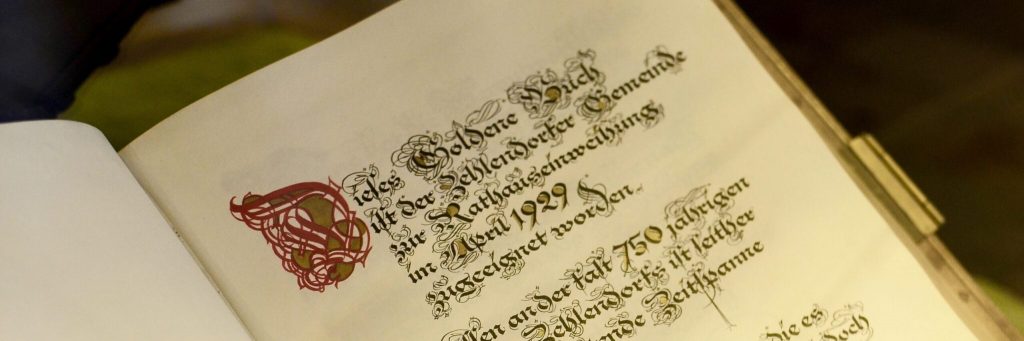 Dieses Goldene Buch
ist der Zehlendorfer Gemeinde
zur Rathauseinweihung
im April 1929
zugeeignet worden.
an der fast 750 jährigen
Zehlendorfs ist seither
Zeitspanne
die es
doch